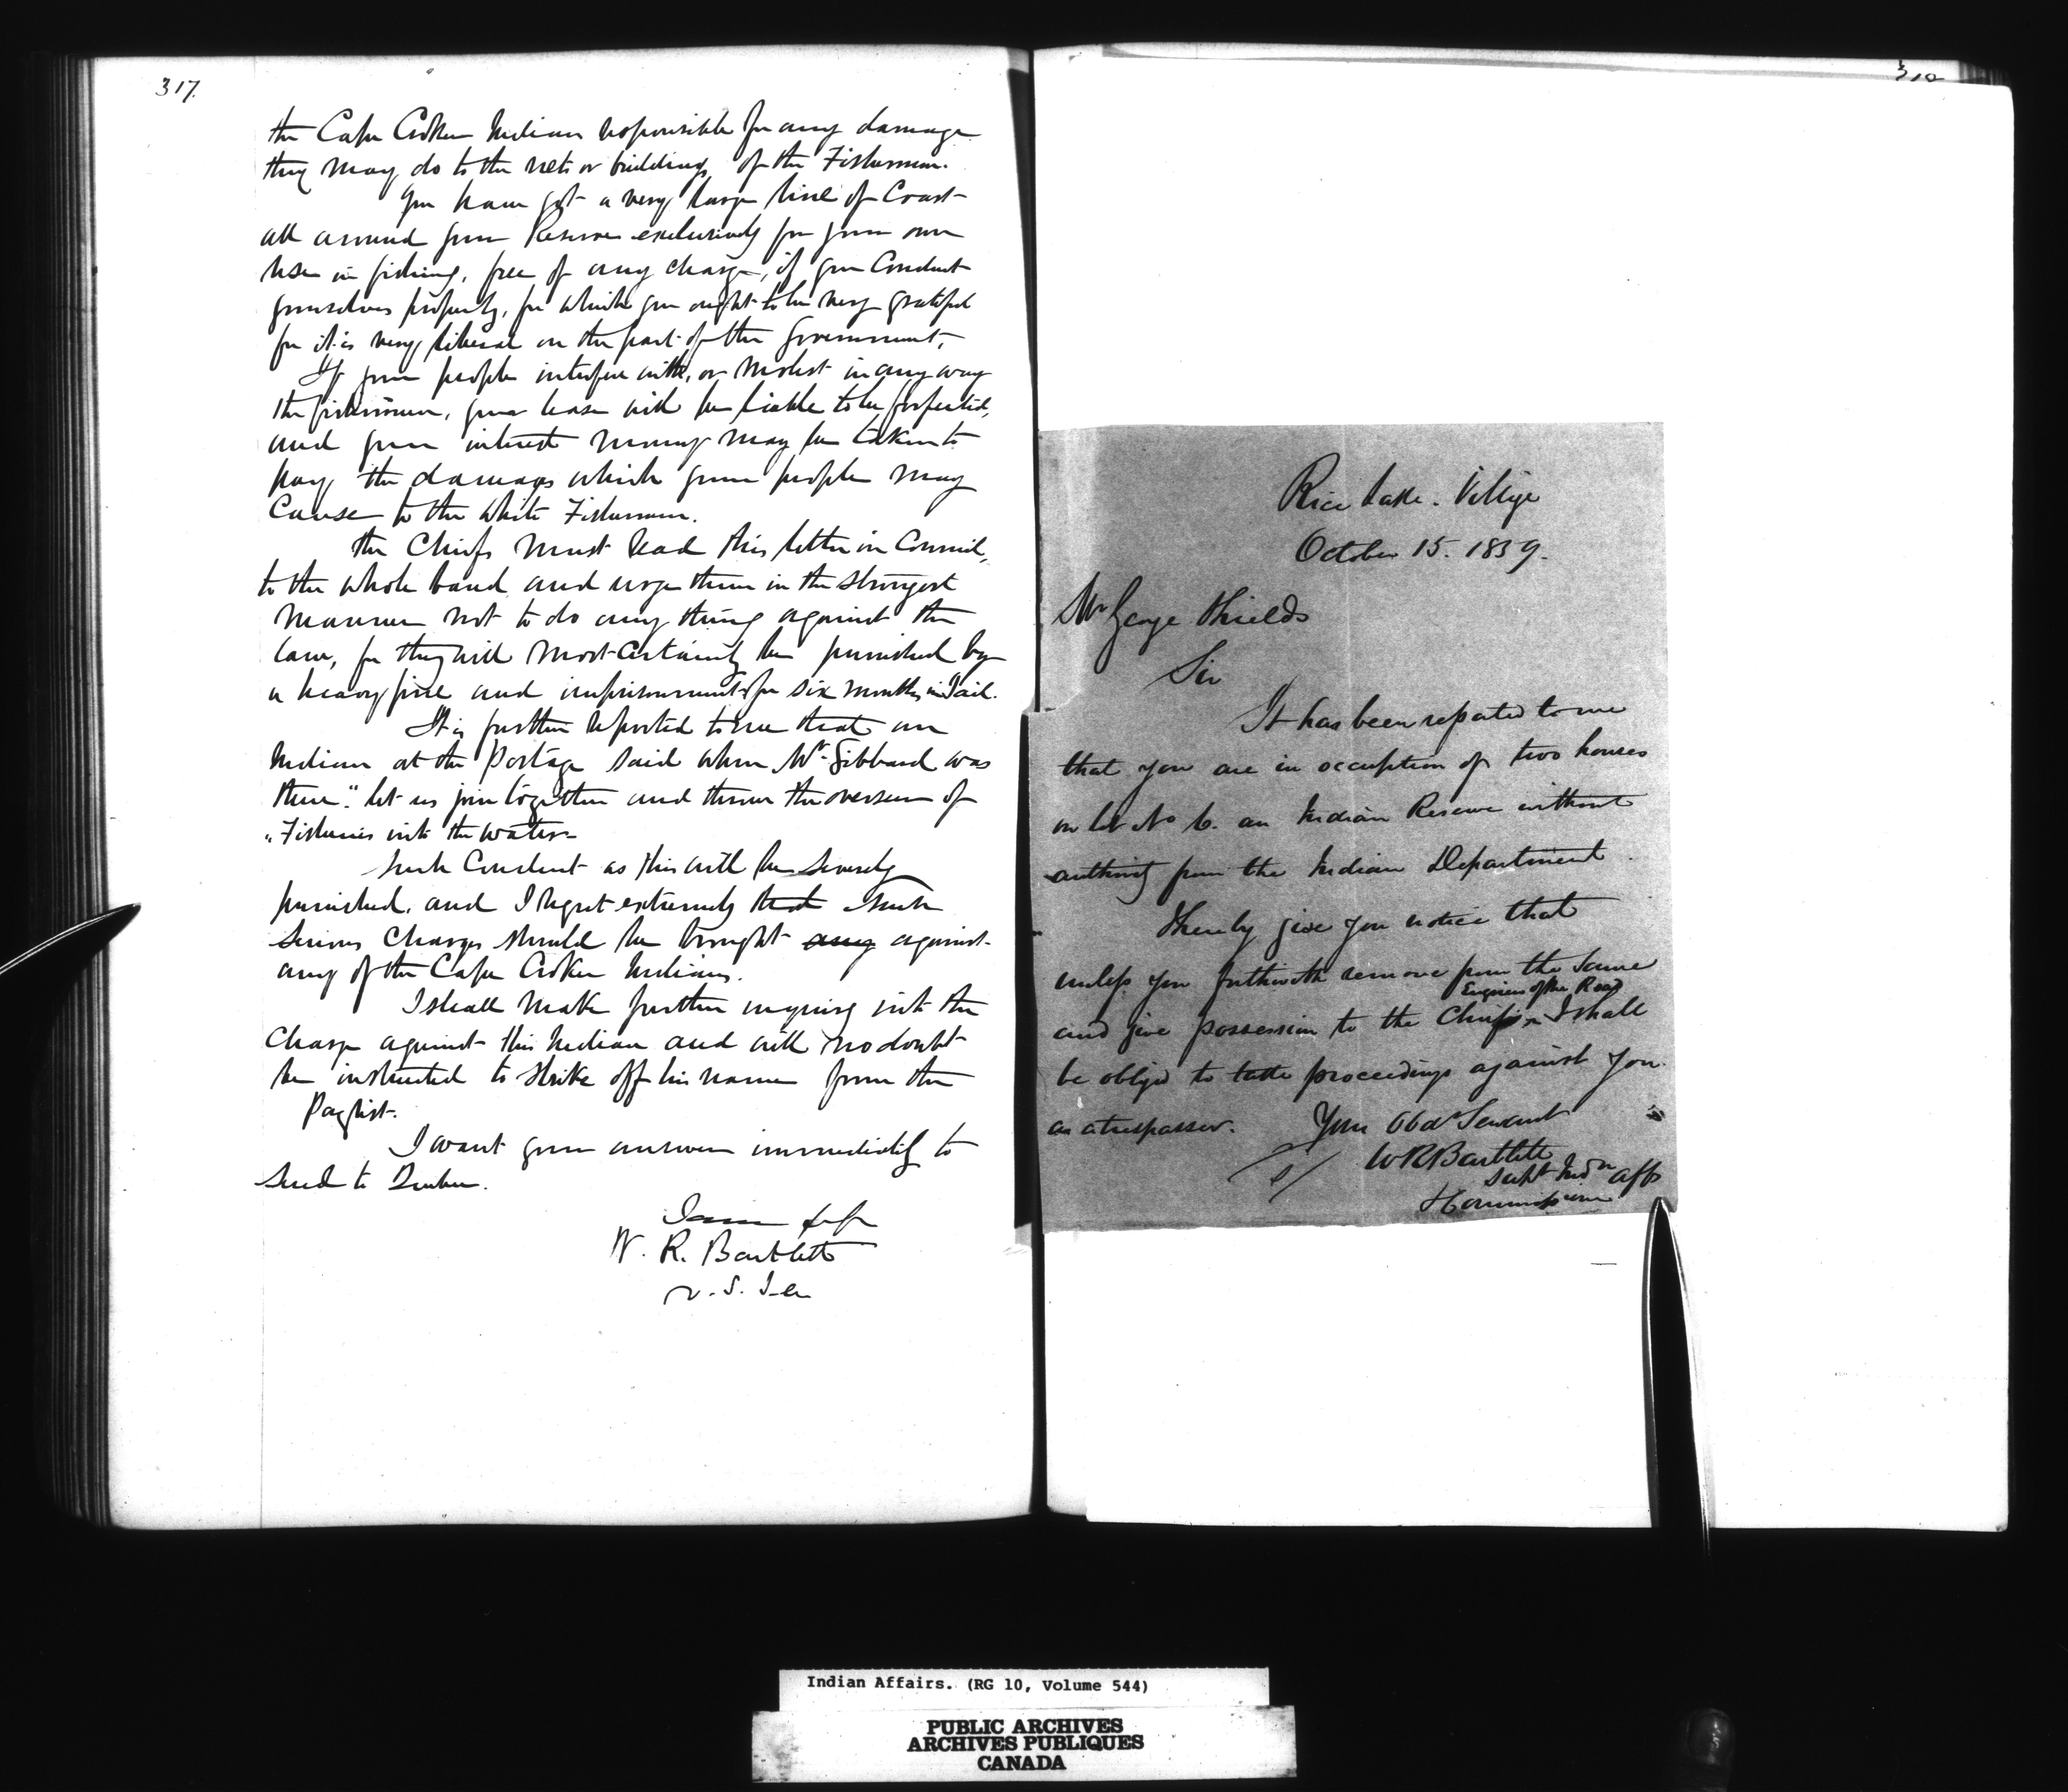 317.
the Cape Croker Indians responsible for any damage
they may do to the nets or buildings of the Fishermen.
You have got a very large line of Coast
all around your Reserve exclusively for your own
use in fishing, free of any charge, if you Conduct
yourselves properly, for which you ought to be very grateful
for it is very liberal on the part of the Government,
If your people interfere with, or molest in any way
the fishermen, your lease will be liable to be forfeited,
and your interest money may be taken to
pay the damages which your people may
Cause to the White Fishermen.
the Chiefs must read this letter in Council,
to the whole band and urge them in the strongest
manner not to do any thing against the
law, for they will most certainly be punished by
a heavy fine and imprisonment for six months in Jail.
It is further reported to me that an
Indian at the Portage said when Mr. Gibbard was
there "let us join together and throw the overseer of
"Fisheries into the water
Such Conduct as this will be severely
punished, and I regret extremely that such
serious charges should be brought any against
any of the Cape Croker Indians.
I shall make further inquiry into the
Charge against this Indian and will no doubt
be instructed to strike off his name from the
Pay list.
I want your answer immediately to
send to Quebec.
W. R. Bartlett
V. S. I. A
Rice Lake. Village
October 15. 1859.
Mr George Shields
Sir
It has been repated to me
that you are in occuption of two houses
on lot No 6. an Indian Reserve without
authority from the Indian Department.
I hereby give you notice that
unless you forthwith remove from the same
Engineer of the Road
and give possession to the Chief, I shall
be obliged to take proceedings against you
as a trespasser. Your Obdt Servant
W R Bartlett
Supt Indn Affs
Indian Affairs. (RG 10, Volume 544)
PUBLIC ARCHIVES
ARCHIVES PUBLIQUES
CANADA